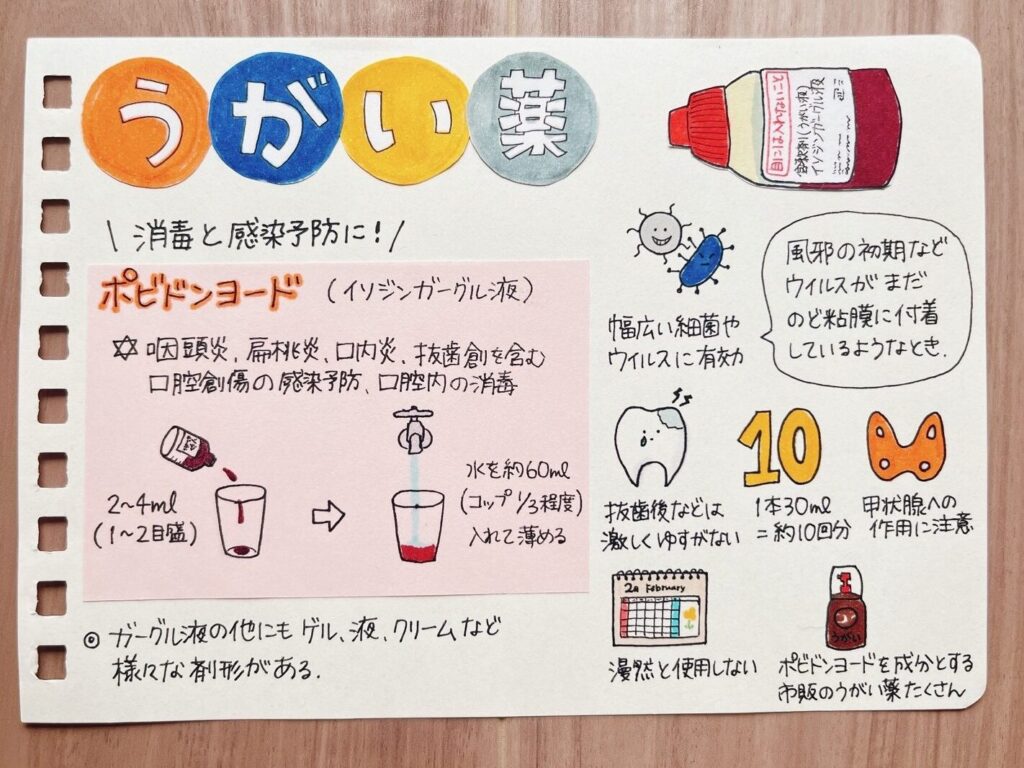 うがい薬
\ 消毒と感染予防に! /
ポビドンヨード (イソジンガーグル液)
✡ 咽頭炎、扁桃炎、口内炎、抜歯創を含む
口腔創傷の感染予防、口腔内の消毒
2~4ml
(1~2目盛)
水を約60ml
(コップ1/3程度)
入れて薄める
◎ ガーグル液の他にもゲル、液、クリームなど
様々な剤形がある.
含嗽剤(うがい液)
イソジンガーグル液
幅広い細菌や
ウイルスに有効
風邪の初期など
ウイルスがまだ
のど粘膜に付着
しているようなとき.
抜歯後などは
激しくゆすがない
10
1本30ml
=約10回分
甲状腺への
作用に注意
2月 February
漫然と使用しない
うがい
ポビドンヨードを成分とする
市販のうがい薬たくさん